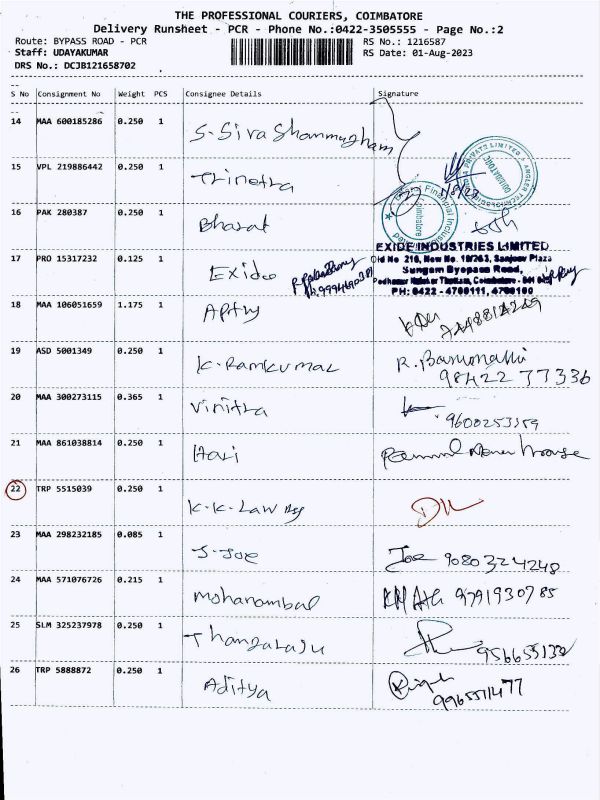 THE PROFESSIONAL COURIERS, COIMBATORE
Delivery Runsheet - PCR - Phone No.:0422-3505555 - Page No.:2
Route: BYPASS ROAD - PCR
RS No.: 1216587
Staff: UDAYAKUMAR
RS Date: 01-Aug-2023
DRS No.: DCJB121658702
S No Consignment No Weight PCS Consignee Details Signature
14 MAA 600185286 0.250 1 S. Siva Shanmugham
15 VPL 219886442 0.250 1 Trinetra
16 PAK 280387 0.250 1 Bharat
EXIDE INDUSTRIES LIMITED
17 PRO 15317232 0.125 1 Exide
Old No 216, New No. 18/263, Sanjeev Plaza
Sungam Byepass Road,
PH: 0422 - 4700111, 4700100
18 MAA 106051659 1.175 1
19 ASD 5001349 0.250 1 K. Ramkumar
98422 77336
20 MAA 300273115 0.365 1 Vinitra
21 MAA 861038814 0.250 1 Hari
22 TRP 5515039 0.250 1 K.K. Law
23 MAA 298232185 0.085 1 J. Joe Joe 9080324248
24 MAA 571076726 0.215 1 Mohanambal 9791930785
25 SLM 325237978 0.250 1 Thangaraju
26 TRP 5888872 0.250 1 Aditya
9965511477